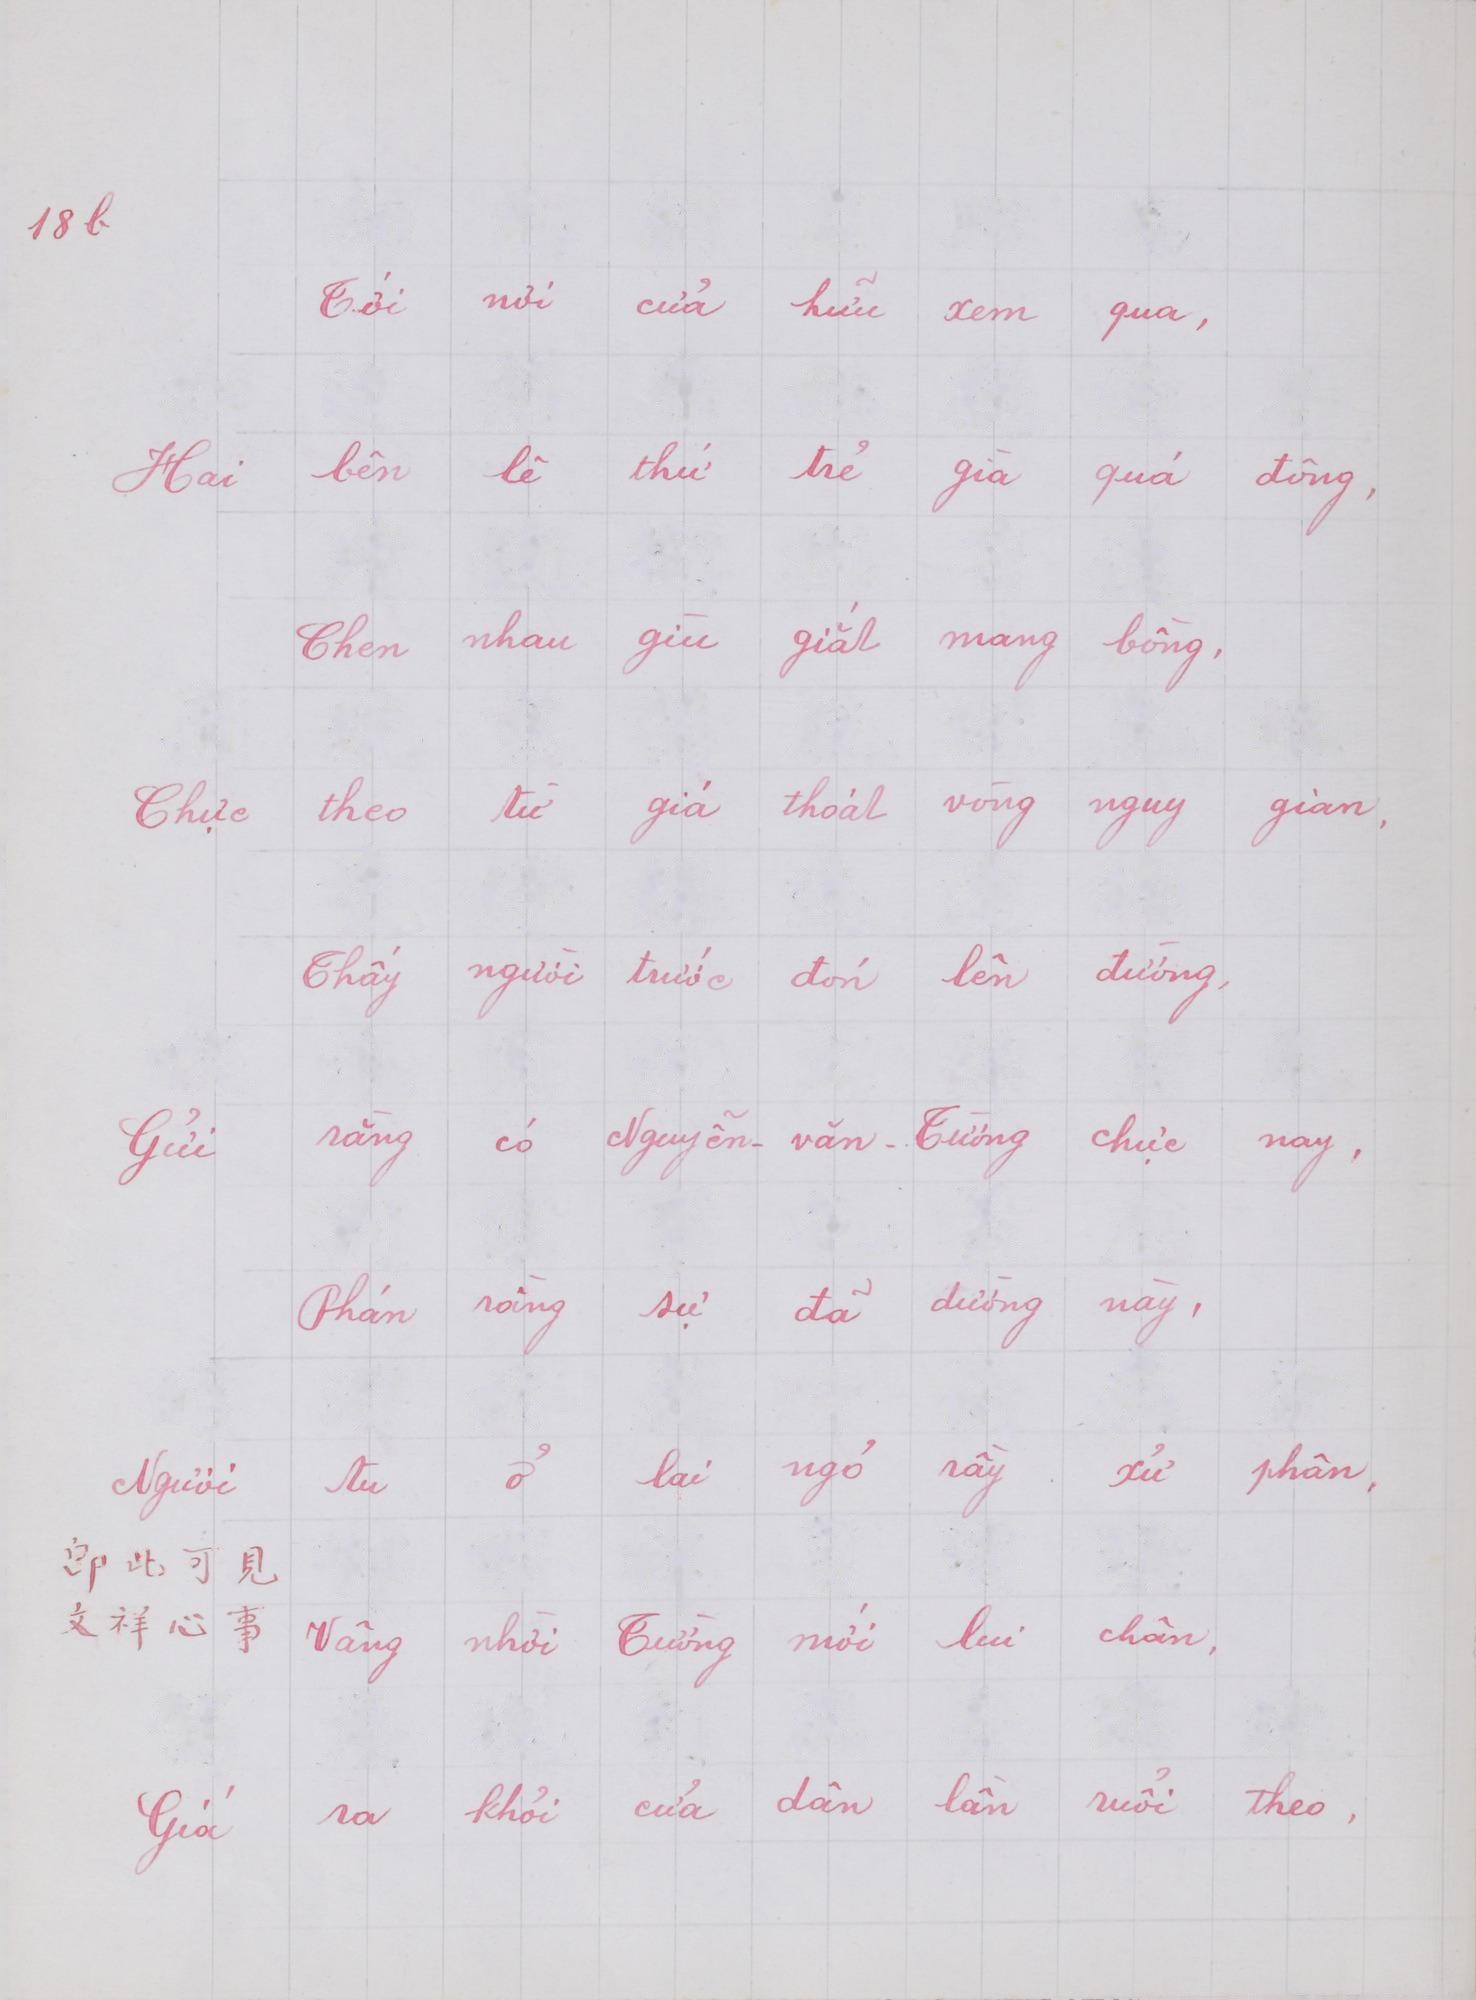 18b
Tới nơi cửa hữu xem qua,
Hai bên lê thứ trẻ già quá đông,
Chen nhau gìu giắt mang bồng,
Chực theo từ giá thoát vòng nguy gian,
Thấy người trước đón lên đường,
Gửi rằng có Nguyễn-văn-Tường chực nay,
Phán rằng sự đã dường này,
Ngươi tu ở lai ngỏ rầy xử phân,
即此可見
文祥心事
Vâng nhời Tường mới lui chân,
Giá ra khỏi cửa dân lần ruổi theo,